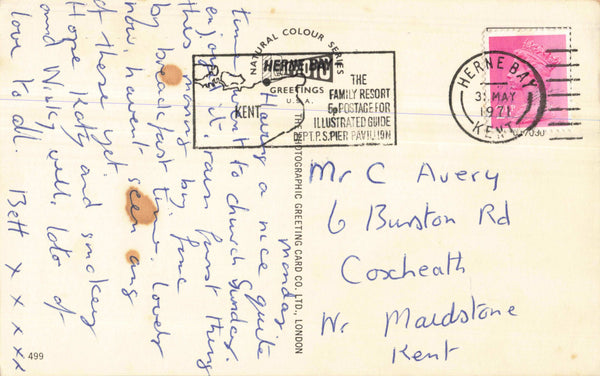 Monday
Having a nice quite
time, went to church Sunday.
enjoyed it, rain first thing
this morning but fine
by breakfast time. Lovely
now, havent seen any
of these yet.
Hope Katy and smokey
and Winky well, lots of
love to all. Bett x x x x x
NATURAL COLOUR SERIES
GREETINGS
U.S.A.
THE PHOTOGRAPHIC GREETING CARD CO., LTD., LONDON
499
HERNE BAY
KENT
THE
FAMILY RESORT
5p POSTAGE FOR
ILLUSTRATED GUIDE
DEPT.P.S. PIER PAVILION
HERNE BAY
MAY
1971
KENT
Mr C Avery
6 Burston Rd
Coxheath
Nr Maidstone
Kent